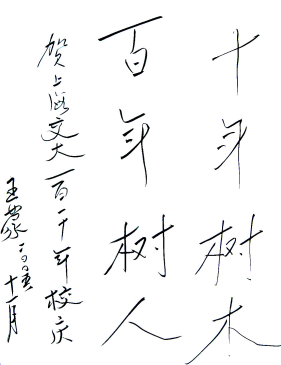 十年树木
百年树人
贺上海交大百十年校庆
王蒙 二〇〇五
十一月